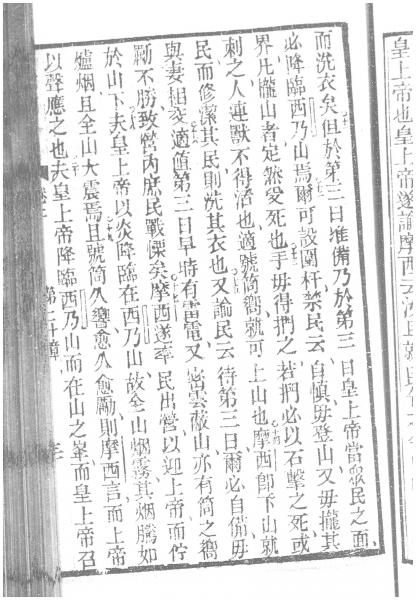 皇上帝也皇上帝遂諭摩西云汝去就民
而洗衣矣但於第三日准備乃於第三日皇上帝當眾民之面
必降臨西乃山焉爾可設圍杆禁民云自慎毋登山又毋攏其
界凡攏山者定然受死也手毋得捫之若捫必以石擊之死或
刺之人連獸不得活也適號筒嚮就可上山也摩西卽下山就
民而修潔其民則洗其衣也又諭民云待第三日爾必自備毋
與妻相交適値第三日早時有雷電又密雲蔽山亦有筒之嚮
勵不勝致營內庶民戰慄矣摩西遂率民出營以迎上帝而佇
於山下夫皇上帝以炎降臨在西乃山故全山烟霧其烟騰如
爐烟且全山大震焉且號筒久響愈久愈勵則摩西言而上帝
以聲應之也夫皇上帝降臨西乃山而在山之峯而皇上帝召
第二十章